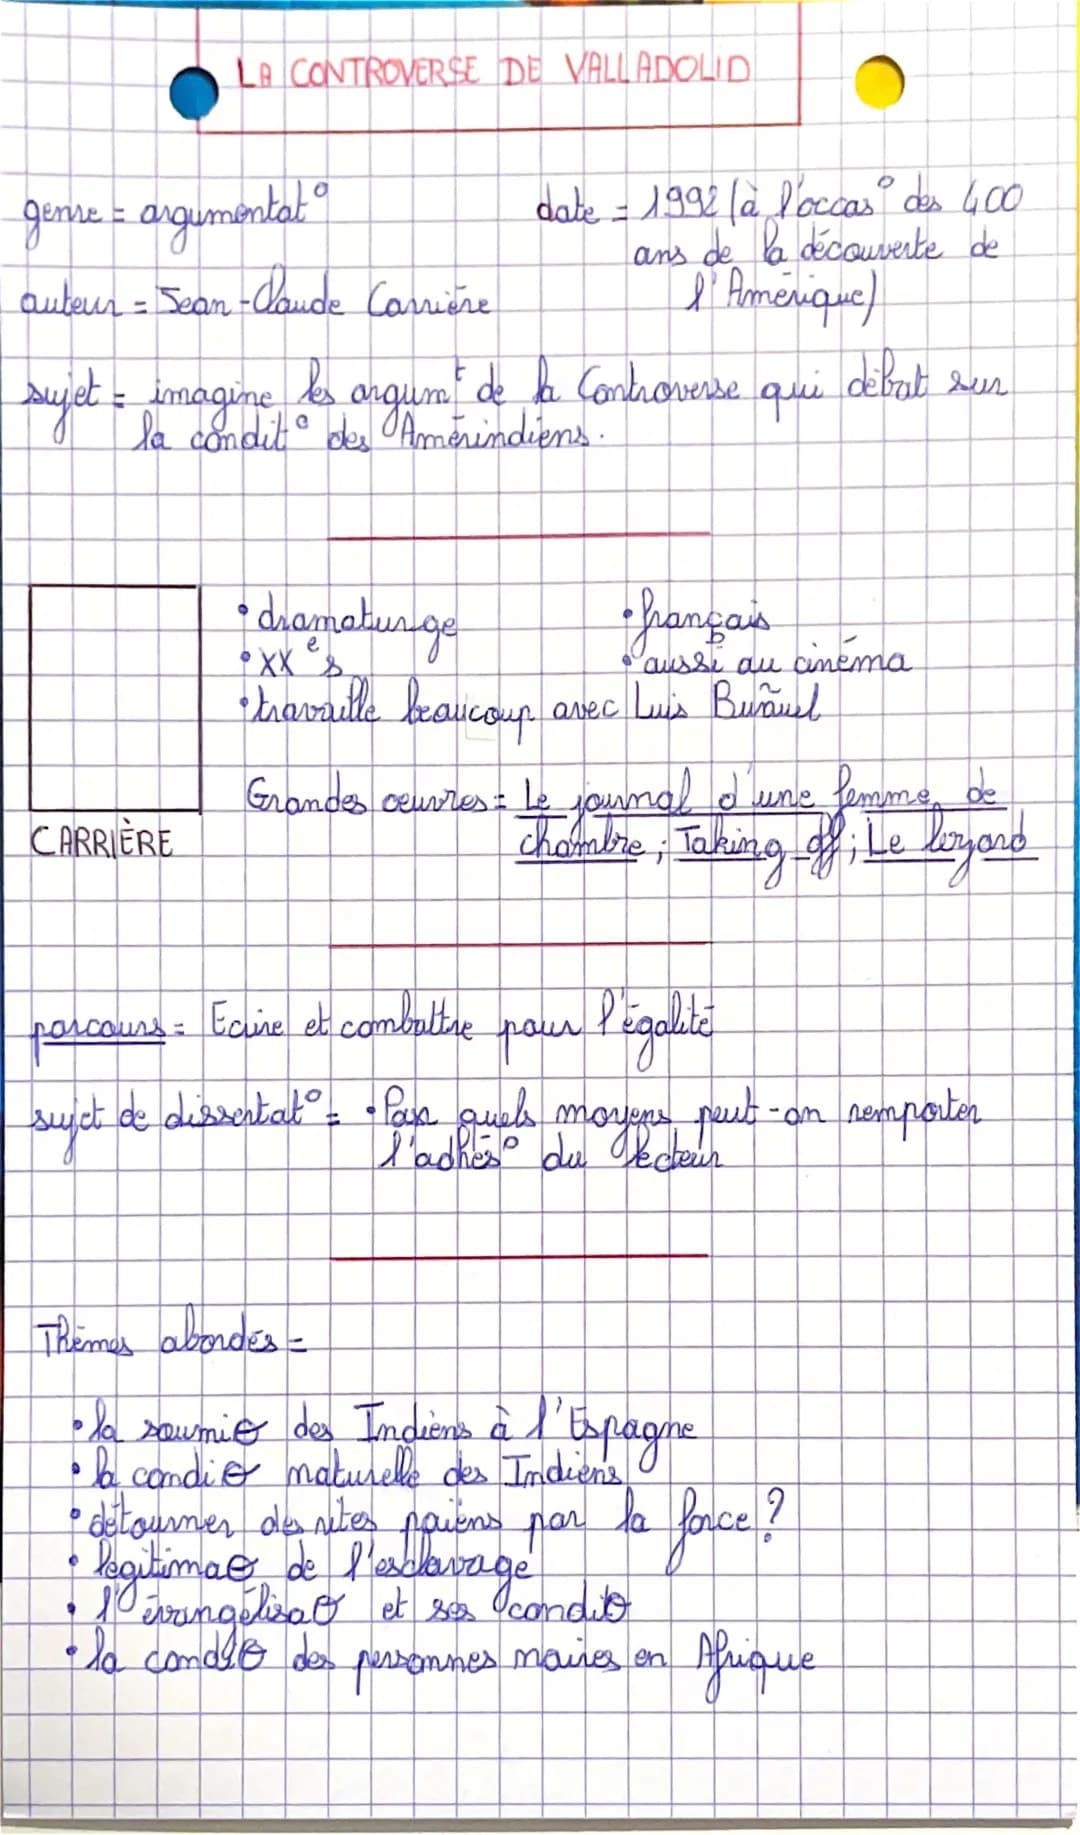 LA CONTROVERSE DE VALLADOLID
genre = argumentat°
date = 1992 (à l'occas° des 400
ans de la découverte de
l'Amérique)
auteur = Jean-Claude Carrière
sujet = imagine les argumt de la Controverse qui débat sur
la condit° des Amérindiens.
• dramaturge
• français
• XXe s
• aussi au cinéma
• travaille beaucoup avec Luis Buñuel
Grandes œuvres = Le journal d'une femme de
chambre ; Taking off ; Le lézard
CARRIÈRE
parcours = Ecrire et combattre pour l'égalité
sujet de dissertat° = • Par quels moyens peut-on remporter
l'adhés° du lecteur
Thèmes abordés =
• la soumi⊖ des Indiens à l'Espagne
• la condi⊖ naturelle des Indiens
• détourner des rites païens par la force ?
• legitima⊖ de l'esclavage
• l'évangélisa⊖ et ses condit⊖
• la condi⊖ des personnes noires en Afrique